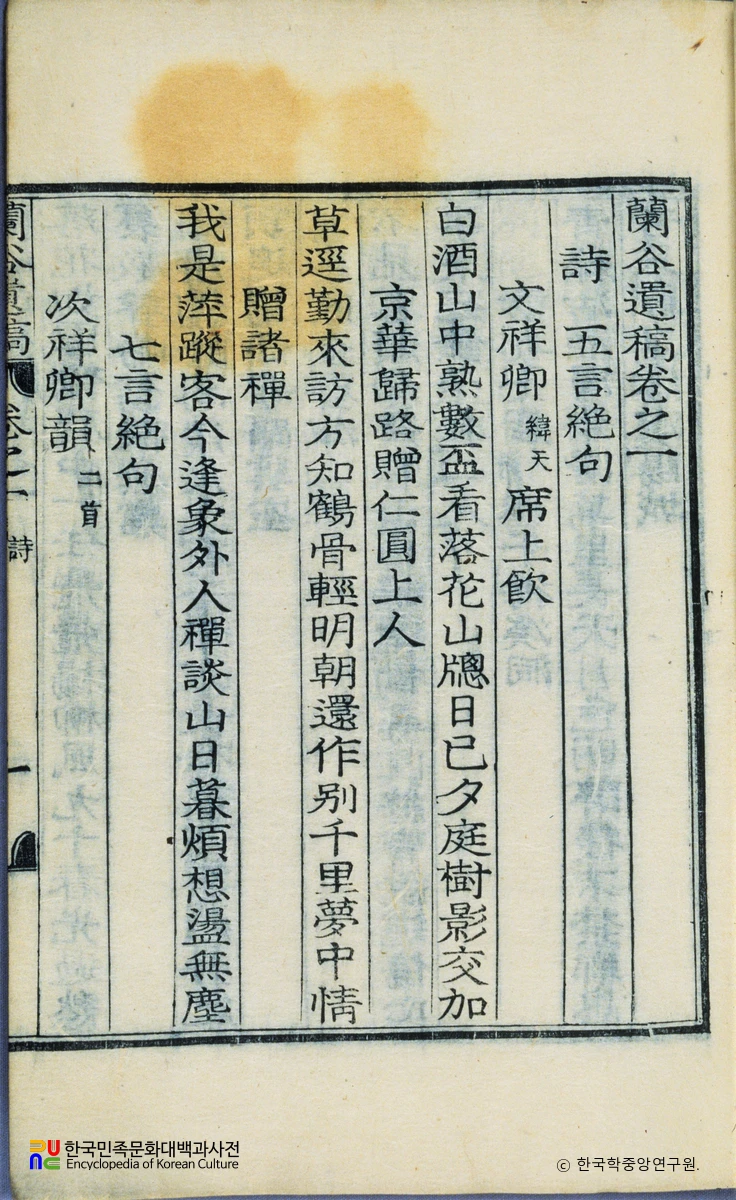 蘭谷遺稿卷之一
詩　五言絶句
文祥卿 緯天 席上飮
白酒山中熟數盃看落花山牕日已夕庭樹影交加
京華歸路贈仁圓上人
草逕勤來訪方知鶴骨輕明朝還作別千里夢中情
贈諸禪
我是萍蹤客今逢象外人禪談山日暮煩想盪無塵
七言絶句
次祥卿韻 二首
蘭谷遺稿 卷之一 詩 一
한국민족문화대백과사전
Encyclopedia of Korean Culture
© 한국학중앙연구원.